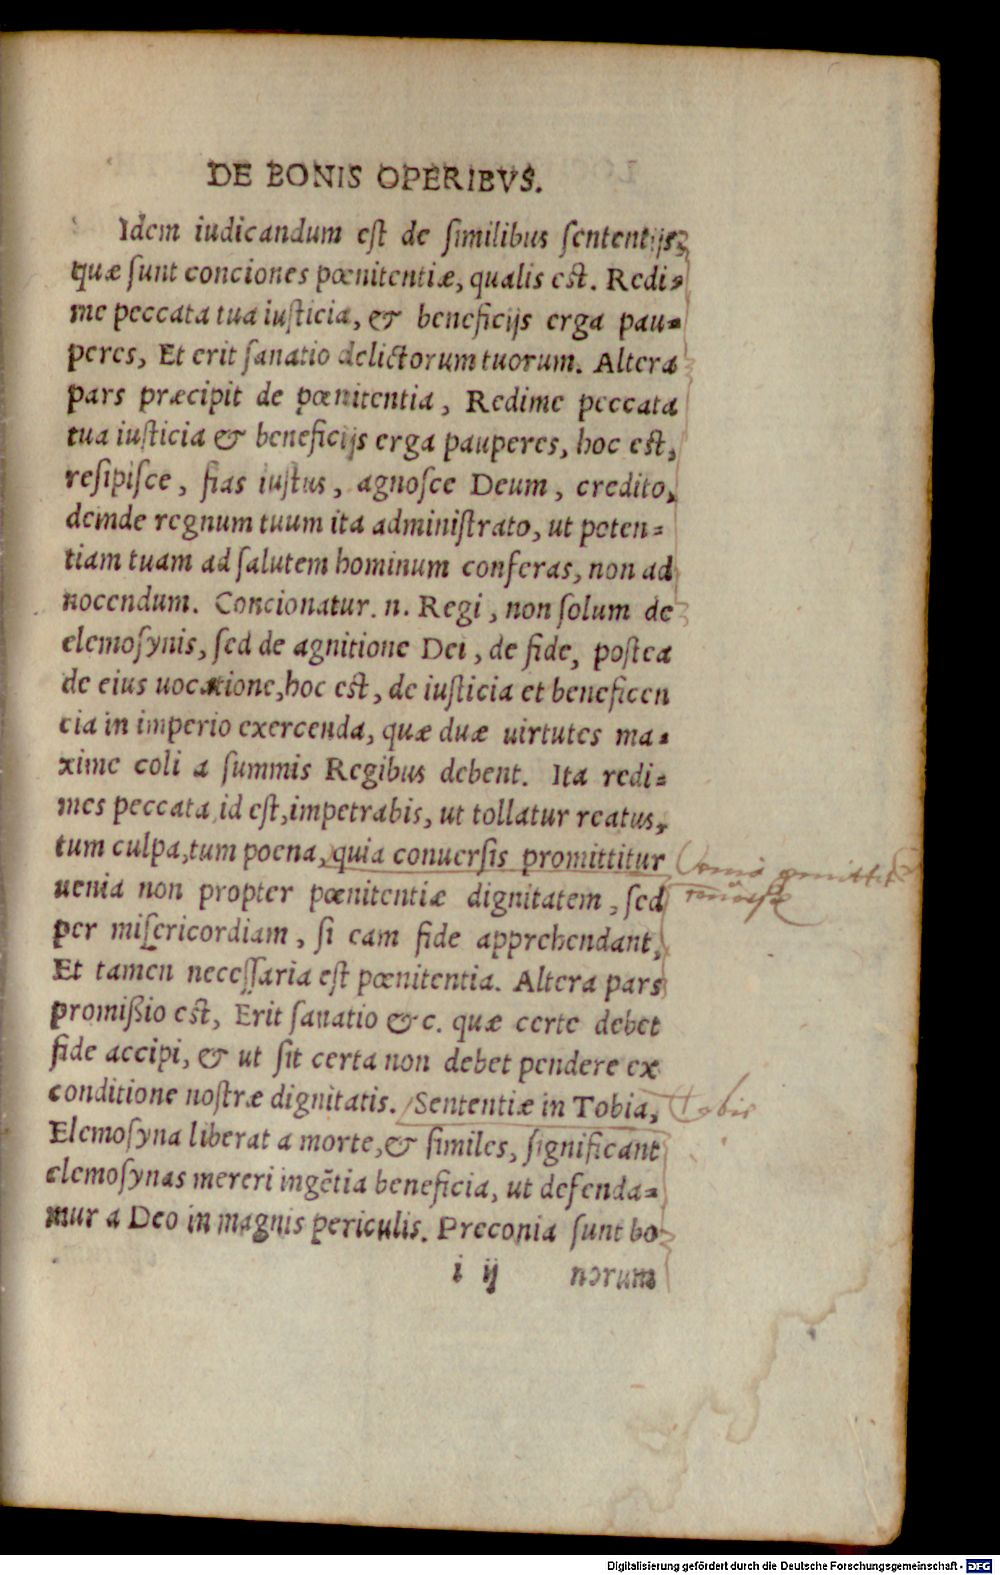 DE BONIS OPERIBVS.
Idem iudicandum eſt de ſimilibus ſententijs,
quæ ſunt conciones pœnitentiæ, qualis eſt. Redi-
me peccata tua iuſticia, & beneficijs erga pau-
peres, Et erit ſanatio delictorum tuorum. Altera
pars præcipit de pœnitentia, Redime peccata
tua iuſticia & beneficijs erga pauperes, hoc eſt,
reſipiſce, fias iuſtus, agnoſce Deum, credito,
deinde regnum tuum ita adminiſtrato, ut poten-
tiam tuam ad ſalutem hominum conferas, non ad
nocendum. Concionatur. n. Regi, non ſolum de
elemoſynis, ſed de agnitione Dei, de fide, poſtea
de eius uocatione, hoc eſt, de iuſticia et beneficen
cia in imperio exercenda, quæ duæ uirtutes ma-
xime coli a ſummis Regibus debent. Ita redi-
mes peccata id eſt, impetrabis, ut tollatur reatus,
tum culpa, tum poena, quia conuerſis promittitur
uenia non propter pœnitentiæ dignitatem, ſed
per miſericordiam, ſi eam fide apprehendant,
Et tamen neceſſaria eſt pœnitentia. Altera pars
promiſſio eſt, Erit ſanatio &c. quæ certe debet
fide accipi, & ut ſit certa non debet pendere ex
conditione noſtræ dignitatis. Sententiæ in Tobia,
Elemoſyna liberat a morte, & ſimiles, ſignificant
elemoſynas mereri ingētia beneficia, ut defenda-
mur a Deo in magnis periculis. Preconia ſunt bo
i ij norum
Digitalisierung gefördert durch die Deutsche Forschungsgemeinschaft - DFG